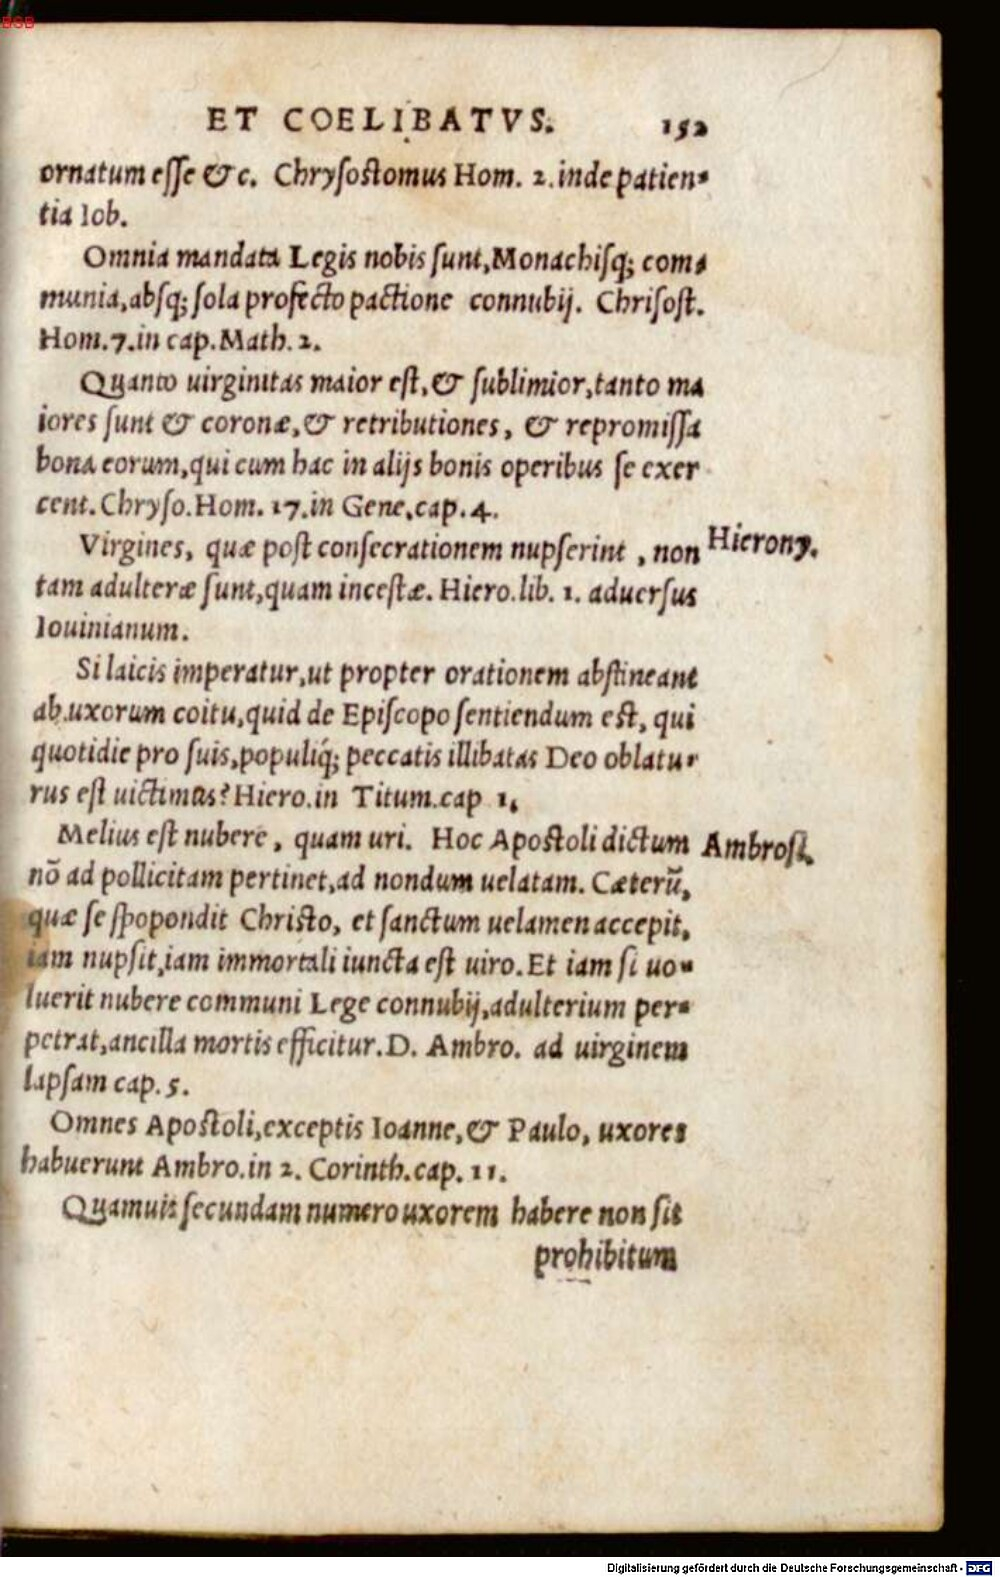 BSB
ET COELIBATVS. 152
ornatum esse &c. Chrysostomus Hom. 2. inde patien-
tia Iob.
Omnia mandata Legis nobis sunt, Monachisq; com-
munia, absq; sola profecto pactione connubij. Chrisost.
Hom. 7. in cap. Math. 2.
Quanto uirginitas maior est, & sublimior, tanto ma
iores sunt & coronæ, & retributiones, & repromissa
bona eorum, qui cum hac in alijs bonis operibus se exer
cent. Chryso. Hom. 17. in Gene, cap. 4.
Virgines, quæ post consecrationem nupserint, non
Hierony.
tam adulteræ sunt, quam incestæ. Hiero. lib. 1. aduersus
Iouinianum.
Si laicis imperatur, ut propter orationem abstineant
ab uxorum coitu, quid de Episcopo sentiendum est, qui
quotidie pro suis, populiq́; peccatis illibatas Deo oblatu-
rus est uictimas? Hiero. in Titum. cap 1.
Melius est nubere, quam uri. Hoc Apostoli dictum
Ambrosi.
nō ad pollicitam pertinet, ad nondum uelatam. Cæterū,
quæ se spopondit Christo, et sanctum uelamen accepit,
iam nupsit, iam immortali iuncta est uiro. Et iam si uo-
luerit nubere communi Lege connubij, adulterium per-
petrat, ancilla mortis efficitur. D. Ambro. ad uirginem
lapsam cap. 5.
Omnes Apostoli, exceptis Ioanne, & Paulo, uxores
habuerunt Ambro. in 2. Corinth. cap. 11.
Quamuis secundam numero uxorem habere non sit
prohibitum
Digitalisierung gefördert durch die Deutsche Forschungsgemeinschaft - DFG